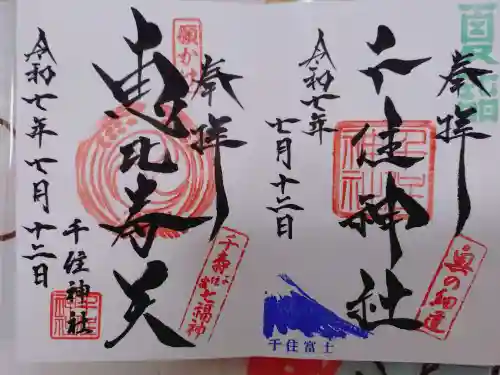 夏詣
奉拝
千住神社
奥の細道
令和七年
七月十二日
千住富士
奉拝
願かけ
恵比寿天
千寿七福神
千住神社
令和七年七月十二日